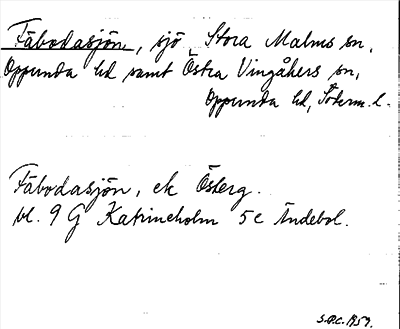 Fäbodasjön, sjö Stora Malms sn,
Oppunda hd samt Östra Vingåkers sn,
Oppunda hd, Söderm. l.
Fäbodasjön, ek Österg.
bl. 9 G Katrineholm 5c Ändebol.
S.P.C. 1959.